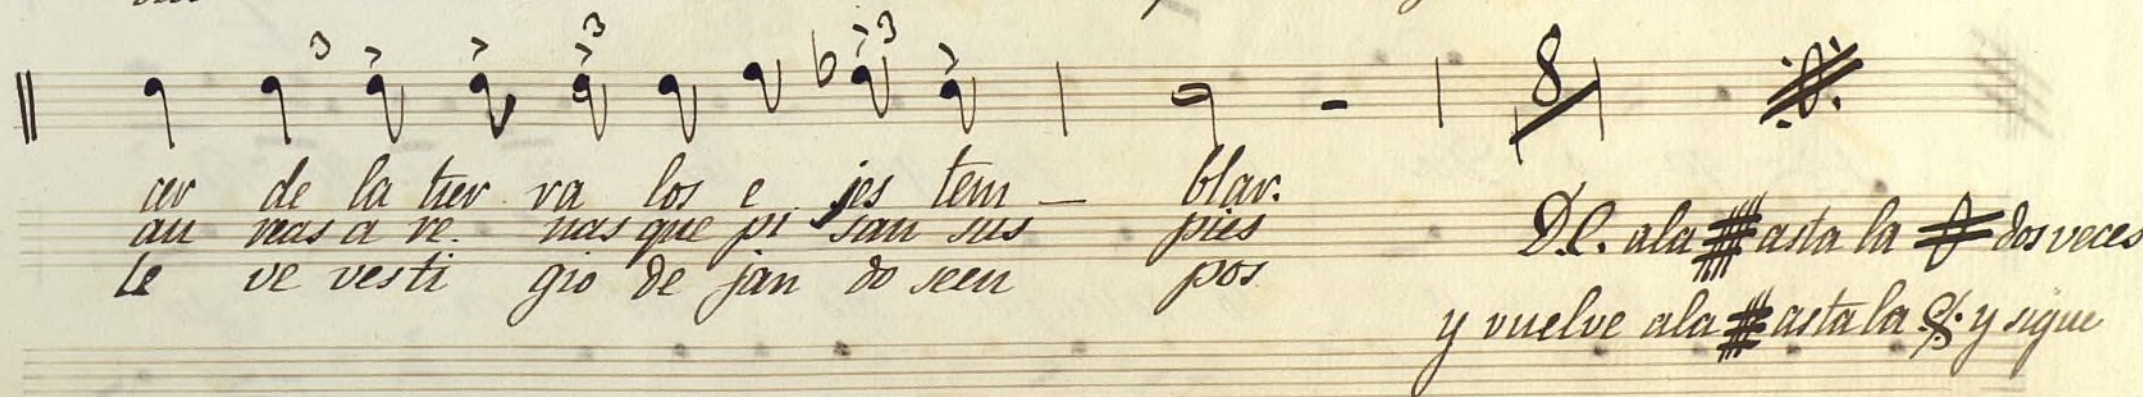 3 3 3
8
cer de la tier ra los e jes tem — blar.
au reas a re. nas que pi san sus pies
le ve vesti gio de jan do seen pos
D.C. ala asta la dos veces
y vuelve ala asta la y sigue